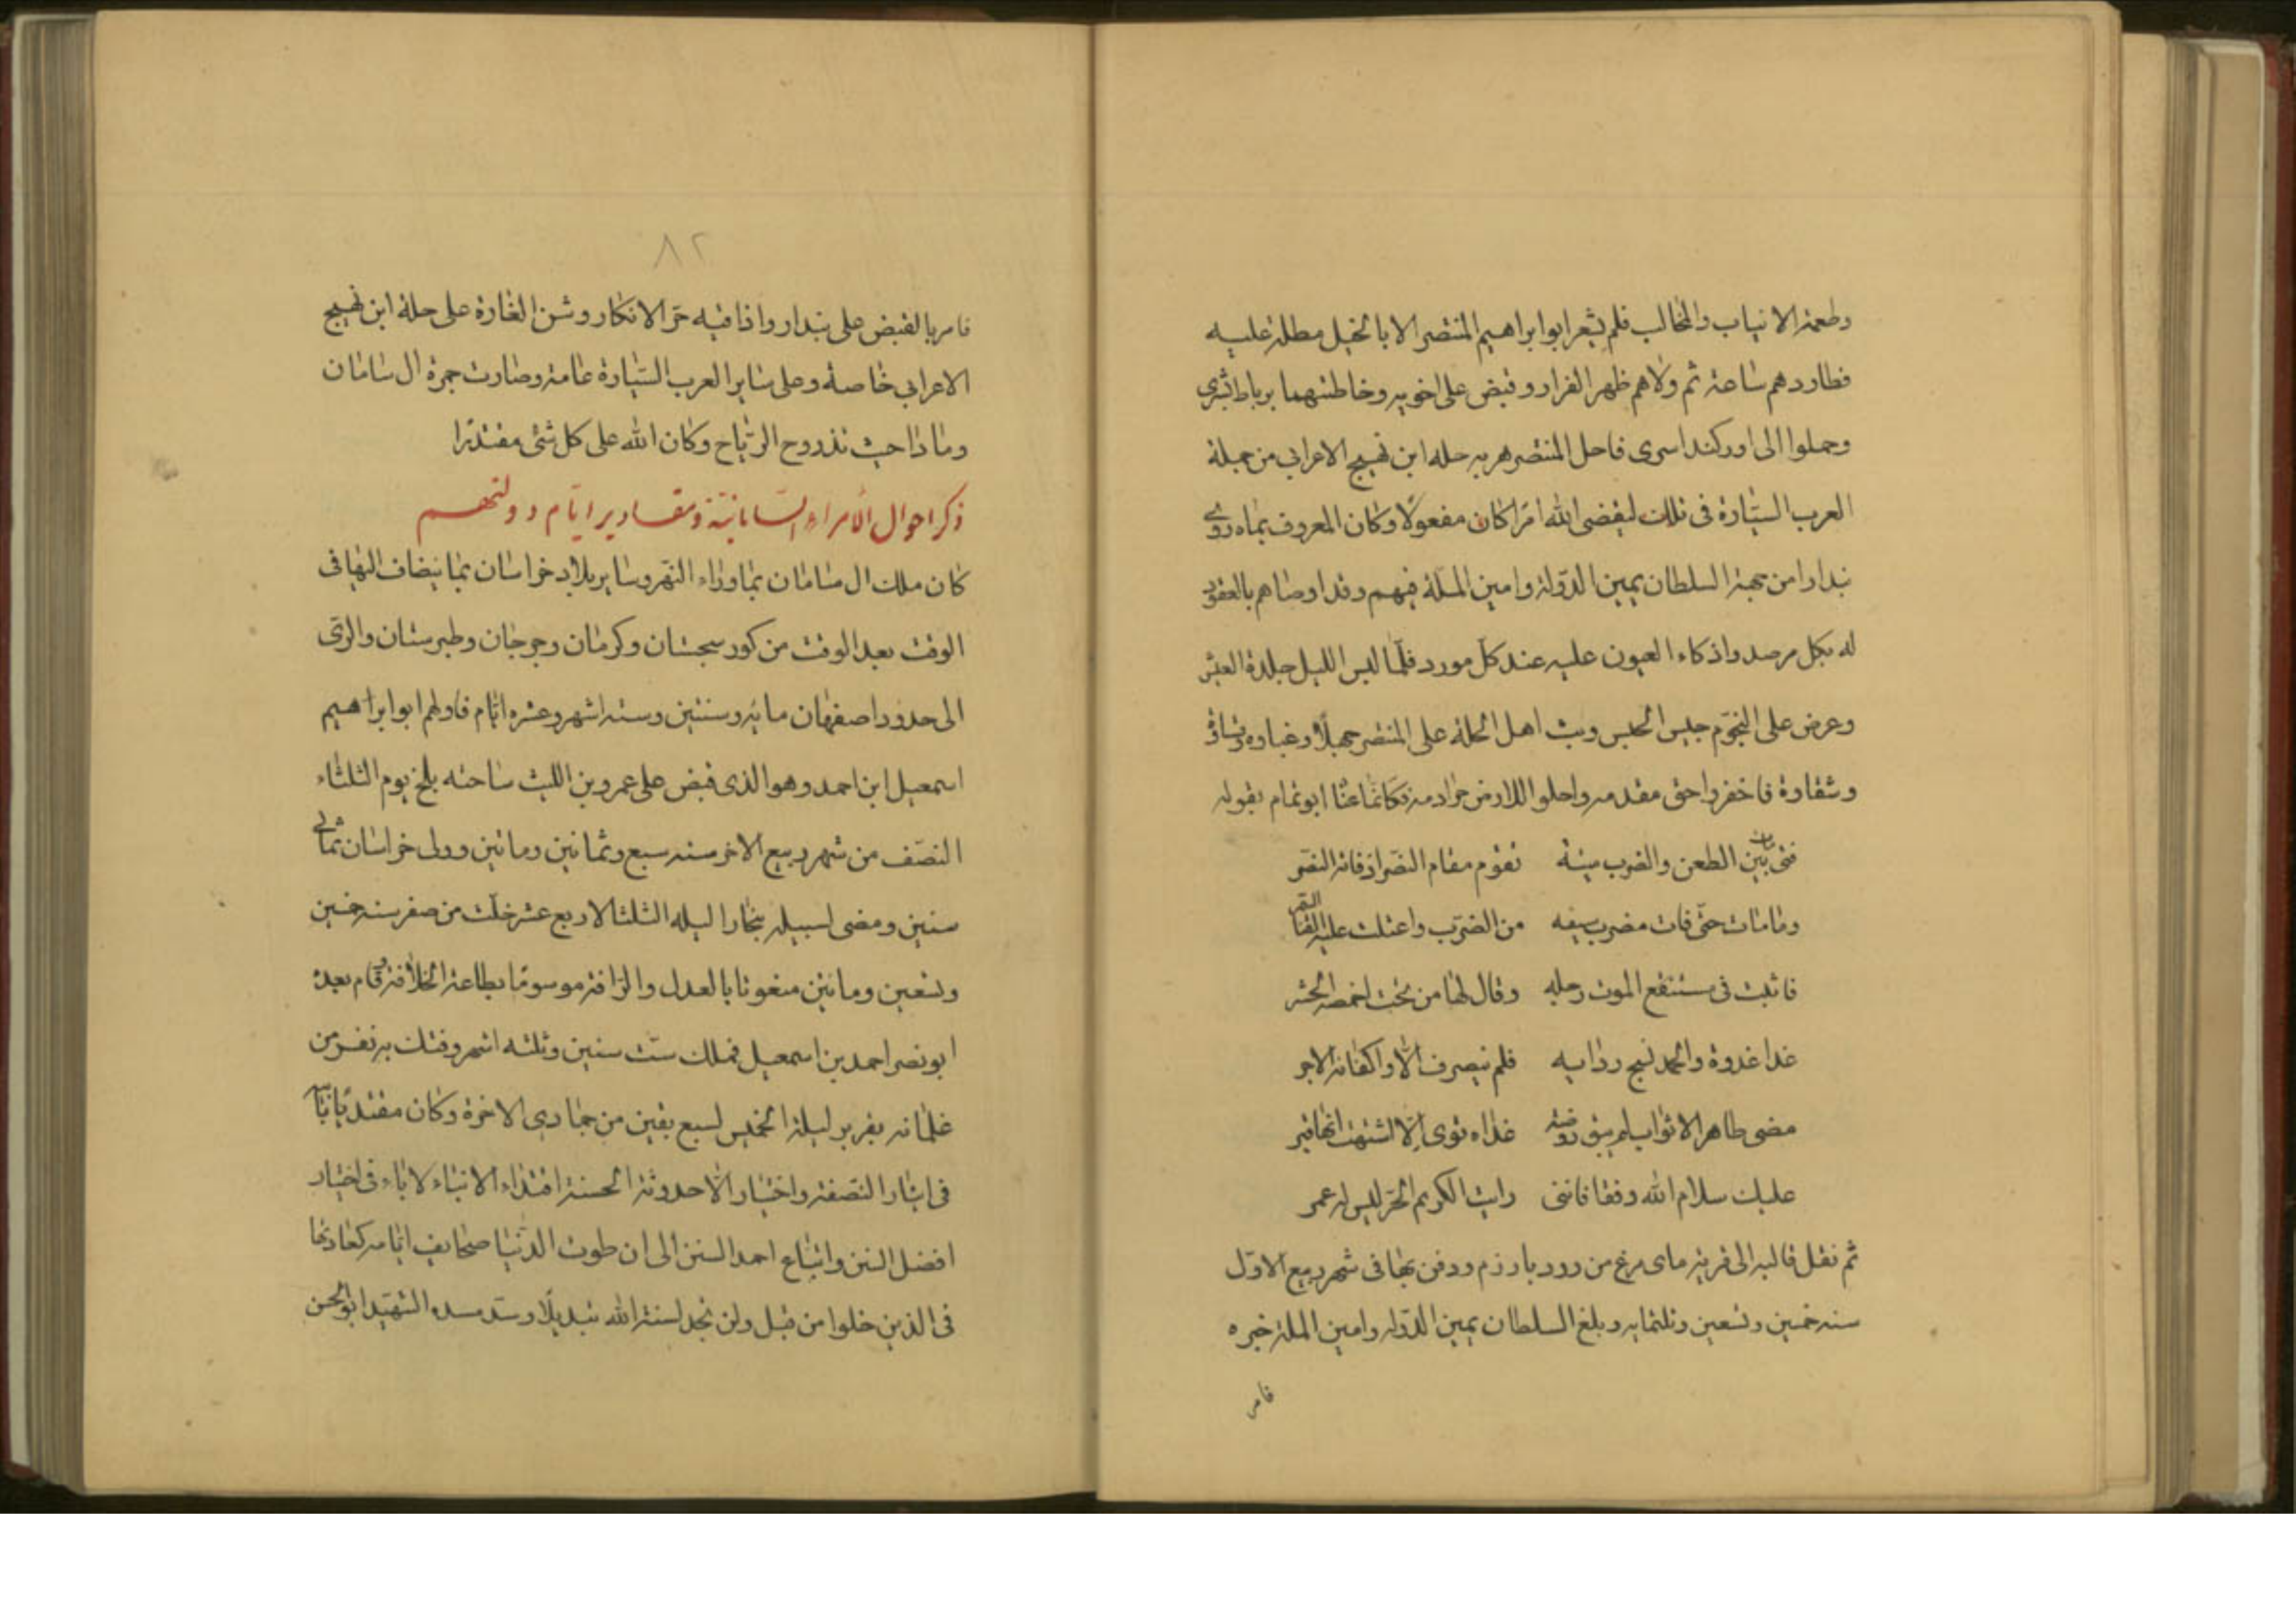 وطعمة الانياب والمخالب فلم يشعر ابو ابراهيم المنتصر الا بالخيل مطلة عليه
فطاردهم ساعة ثم ولاهم ظهر الفرار وقبض على اخويه وخاطتهما برباط بشرى
وحملوا الى اوركند اسرى فاحل المنتصر هربه حلة ابن بهيج الاعرابي من جملة
العرب السيّارة في تلك ليقضى الله امرًا كان مفعولًا وكان المعروف بماه روى
بندارا من جهة السلطان يمين الدّولة وامين الملّة فيهم وقد اوصاهم بالعقود
له بكل مرصد واذكاء العيون عليه عند كلّ مورد فلمّا لبس الليل جلدة
وعرض على النجوّم جيس الحلس وثب اهل الحلة على المنتصر جهلًا وغباوة
وشقاوة فاخفروا حق مقدمه واحلوا للارض حرام دمه فكانّما عنا ابو تمام بقوله
فتى مات بين الطعن والضرب ميتة تقوم مقام النصر اذ فاته النصر
وما مات حتّى فات مضرب سيفه من الضرب واعتلت عليه القنا السّمر
فاثبت في مستنقع الموت رجله وقال لها من تحت اخمصه الحشر
غدا غدوة والحمد نسج ردايه فلم ينصرف الّا واكفانه الاجر
مضى طاهر الاثواب لم يبق روضة غداه ثوى الّا اشتهت انها قبر
عليك سلام الله وقفا فاننى رايت الكريم الحرّ ليس له عمر
ثم نقل قالبه الى قرية ماى مرغ من رودبار زم ودفن بها في شهر ربيع الاوّل
سنه خمسين وتسعين وثلثمايه وبلغ السلطان يمين الدّوله وامين الملة خبره
فامر
٨٢
فامر بالقبض على بندار واذاقيه حرّ الانكار وشنّ الغارة على حلة ابن بهيج
الاعرابي خاصة وعلى ساير العرب السّيارة عامة وصارت جمرة ال سامان
رمادا حيث تذروح الرّياح وكان الله على كل شئ مقتدرًا
ذكر احوال الأمراء السامانيّة ومقادير ايّام دولتهم
كان ملك ال سامان بما وراء النّهر وساير بلاد خراسان بما ينضاف اليها في
الوقت بعد الوقت من كور سجستان وكرمان وجرجان وطبرستان والرّى
الى حدود اصفهان مايه وسنتين وسته اشهر وعشره ايّام فاولهم ابو ابراهيم
اسمعيل ابن احمد وهو الذى قبض على عمرو بن الليث ساحته بلخ يوم الثلثاء
النصف من شهر ربيع الاخر سنه سبع وثمانين ومائين وولى خراسان ثمانى
سنين ومضى لسبيله بخارا ليله الثلثا لاربع عشر خلت من صفر سنه خمسين
وتسعين ومائين منعوتا بالعدل والرّافة موسومًا بطاعة الخلافة وقام بعده
ابو نصر احمد بن اسمعيل فملك ستّ سنين وثلثه اشهر وفتك به نفر من
غلمانه بفربر ليلة الخميس لسبع بقين من جمادى الاخرة وكان مقتديًا بابيه
في ايثار النصفة واختيار الأحدوثة الحسنة اقتداء الابناء لاباء في اختيار
افضل السنن واتباع احمد السنن الى ان طوت الدّنيا صحايف ايّامه كعادتها
في الذين خلوا من قبل ولن تجد لسنة الله تبديلًا وسدّ مسدّه الشّهيد ابو الحسن